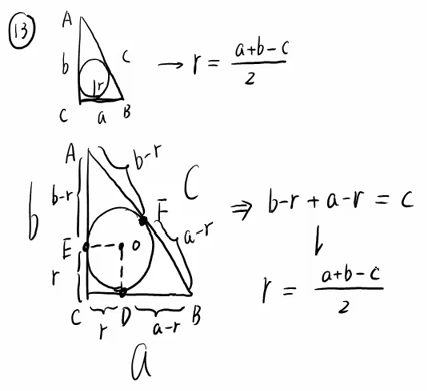 ⑬
A
b
c
r
C a B
→ r = \frac{a+b-c}{2}
A
b-r
b-r
b
C
F
E
O
a-r
r
C D B
r
a-r
a
⇒ b-r + a-r = c
↓
r = \frac{a+b-c}{2}